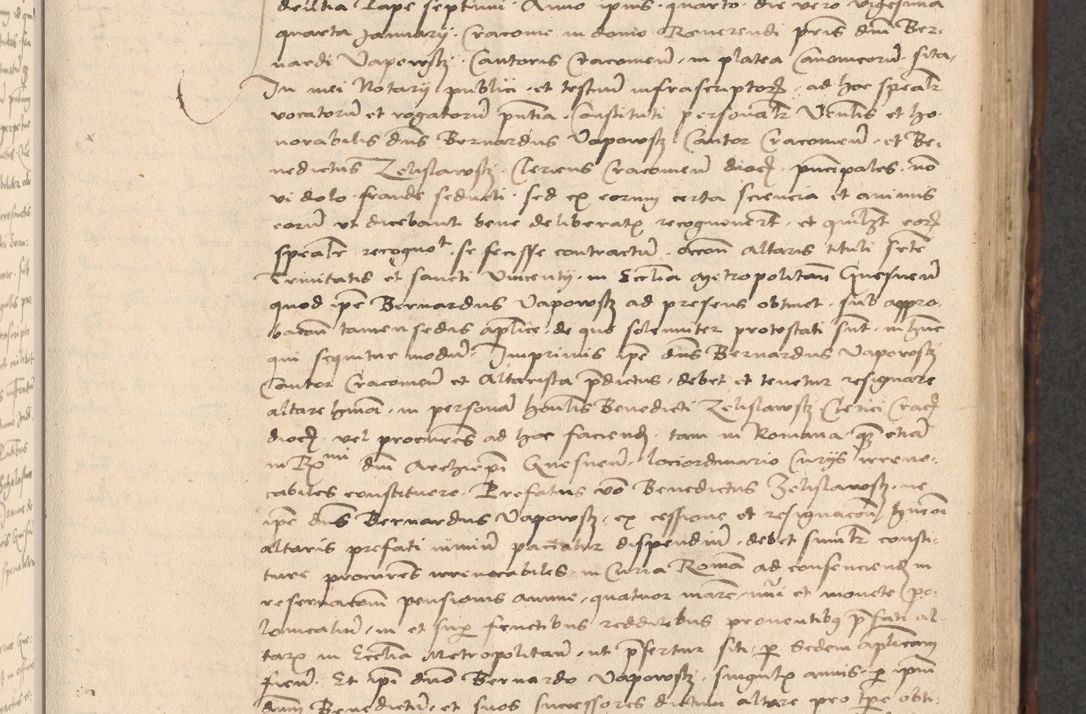 dentia Pape septimi. Anno ipius. quarto. die vero vigesima
quarta Januarij. Cracovie. in domo Reverendi pris dni Ber-
nardi Vapowskj. Cantoris Cracovien. in platea Canonicorum. sita.
In mei Notarij publici. et testium infrascriptor. ad hoc spealr
vocatorum et rogatorum pntia. Constituti personalr Venlis et ho-
norabilis dns Bernardus Vapowskj Cantor Cracovien. et Be-
nedictus Zelislawskj. Clericus Cracovien dioc. principales. non
vi dolo. fraude seducti. sed ex eorum certa sciencia et animis
eorum ut dicebant bene deliberatis recognoverunt. et quilbt eor
spealr recognovit. se fecisse contractum. accon altaris tituli scte
Trinitatis et sancti Vincentij. in Ecclia metropolitan Gnesnen
quod ipe Bernardus Vapowskj ad presens obtinet. sub appro-
bacon tamen sedis aplice. de quo solemniter protestati sunt. in hunc
qui sequitur modum. Imprimis ipe dns Bernardus Vapowskj
Cantor Cracovien et Altarista pdictus. debet et tenetur resignare
altare hmoi. in persona honlis Benedicti Zelislawskj Clerici Crac
dioc. vel procures ad hoc faciend. tam in Romana. quam etiam
in Rmi dni Archiepi Gnesnen. lociordinario Curijs irrevo-
cabiles constituere. Prefatus vero Benedictus Zelislawskj. ne
ipe dns Bernardus Vapowskj. ex cessione et resignacon hmoi
altaris prefati nimium paciatur dispendium. debet similr consti-
tuere procures irrevocabiles. in Curia Roman ad consenciend in
reservacom pensionis annue. quatuor marc. nui et monete po-
lonicalium. in et super fructibus redditibus proventibus pfati al-
taris in Ecclia Metropolitan. ut pfertur siti. per Sedem aplicam
fiend. Et ipi dno Bernardo Vapowskj. singulis annis. per ipum
dnm Benedictum. et suos successores dictum altare pro tpe obti-